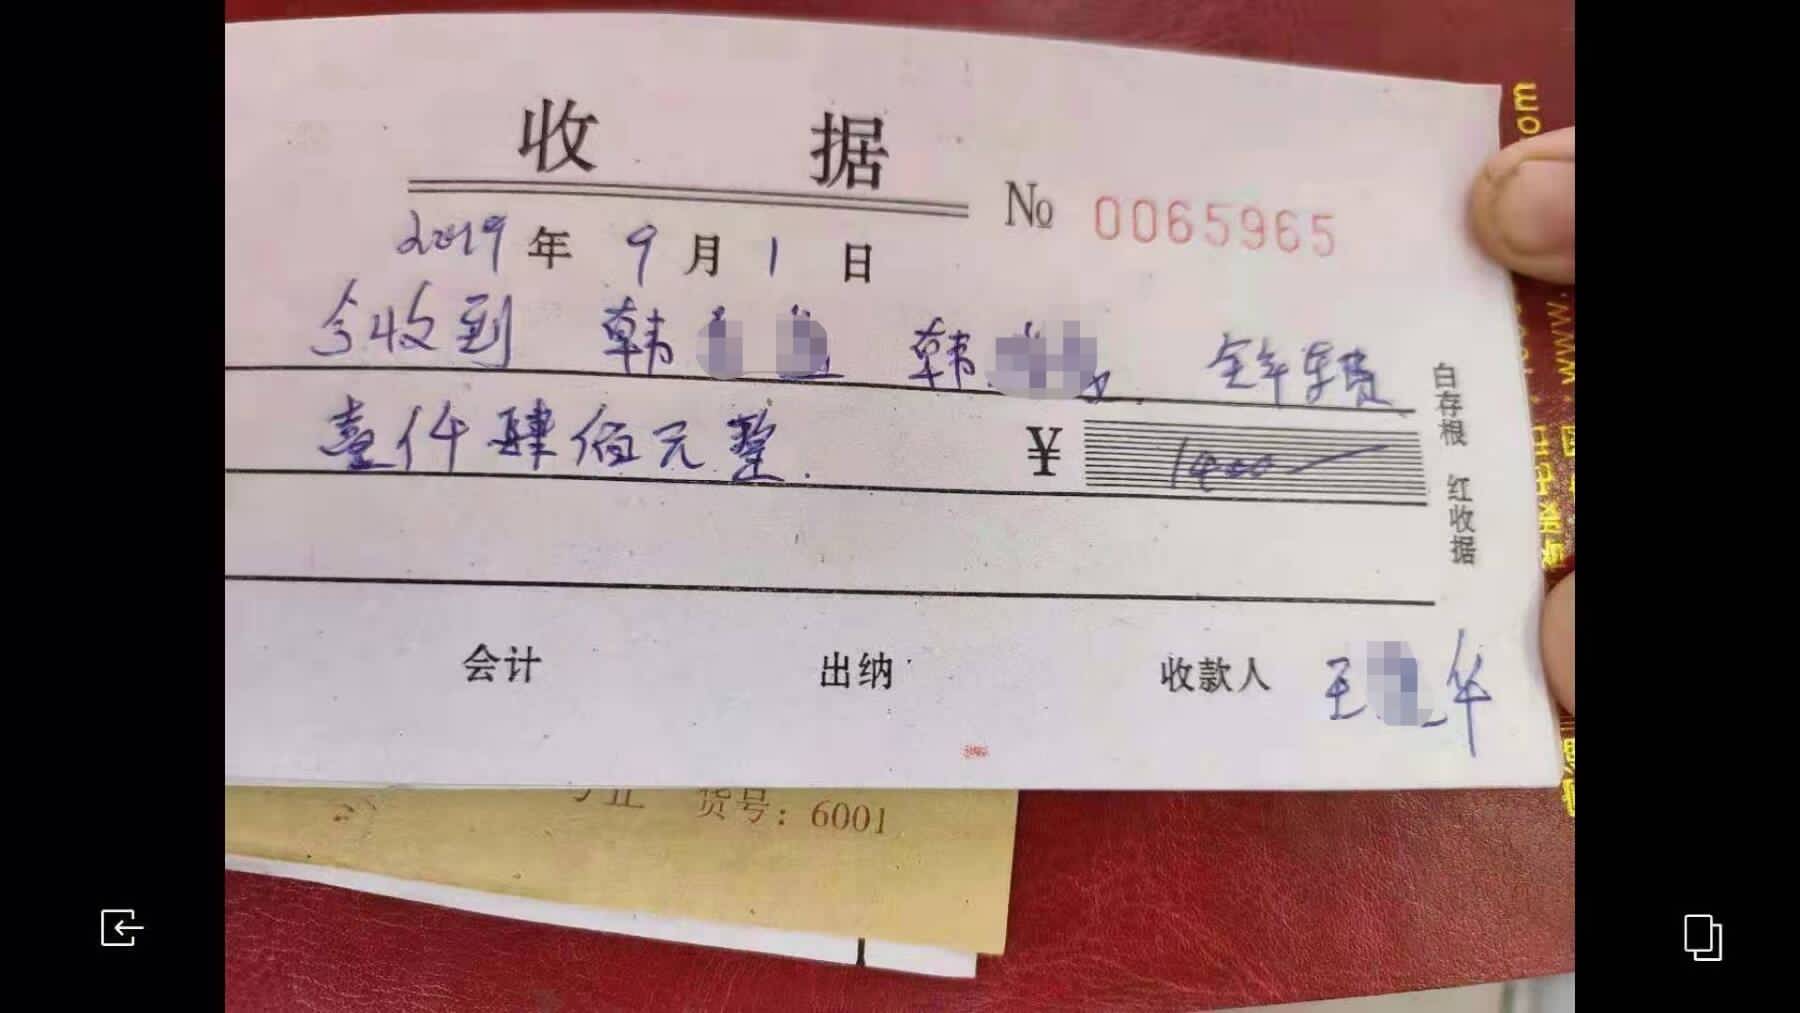 收据
№ 0065965
2019年9月1日
今收到 韩 韩 全年车费
壹仟肆佰元整.
¥ 1400
白存根 红收据
会计 出纳 收款人 王 华
货号：6001
om
www.